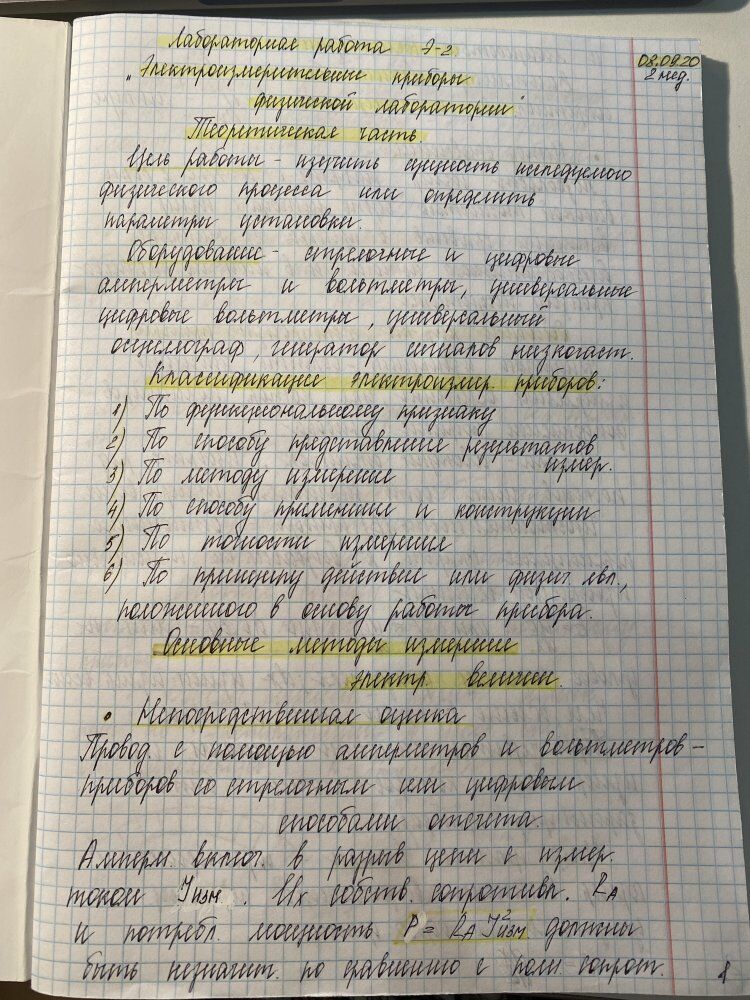 Лабораторная работа Э-2
08.09.20
2 нед.
"Электроизмерительные приборы
физической лаборатории"
Теоретическая часть.
Цель работы - изучить сущность исследуемого
физического процесса или определить
параметры установки.
Оборудование - стрелочные и цифровые
амперметры и вольтметры, универсальные
цифровые вольтметры, универсальный
осциллограф, генератор сигналов низкочаст.
Классификация электроизмер. приборов:
1) По функциональному признаку
2) По способу представления результатов
измер.
3) По методу измерения
4) По способу применения и конструкции
5) По точности измерения
6) По принципу действия или физич. явл.,
положенного в основу работы прибора.
Основные методы измерения
электр. величин.
• Непосредственная оценка
Провод. с помощью амперметров и вольтметров -
приборов со стрелочным или цифровым
способами отсчета.
Амперм. включ. в разрыв цепи с измер.
током Jизм. Их собств. сопротивл. RA
и потребл. мощность P = RA J²изм должны
быть незначит. по сравнению с полн. сопрот.
1